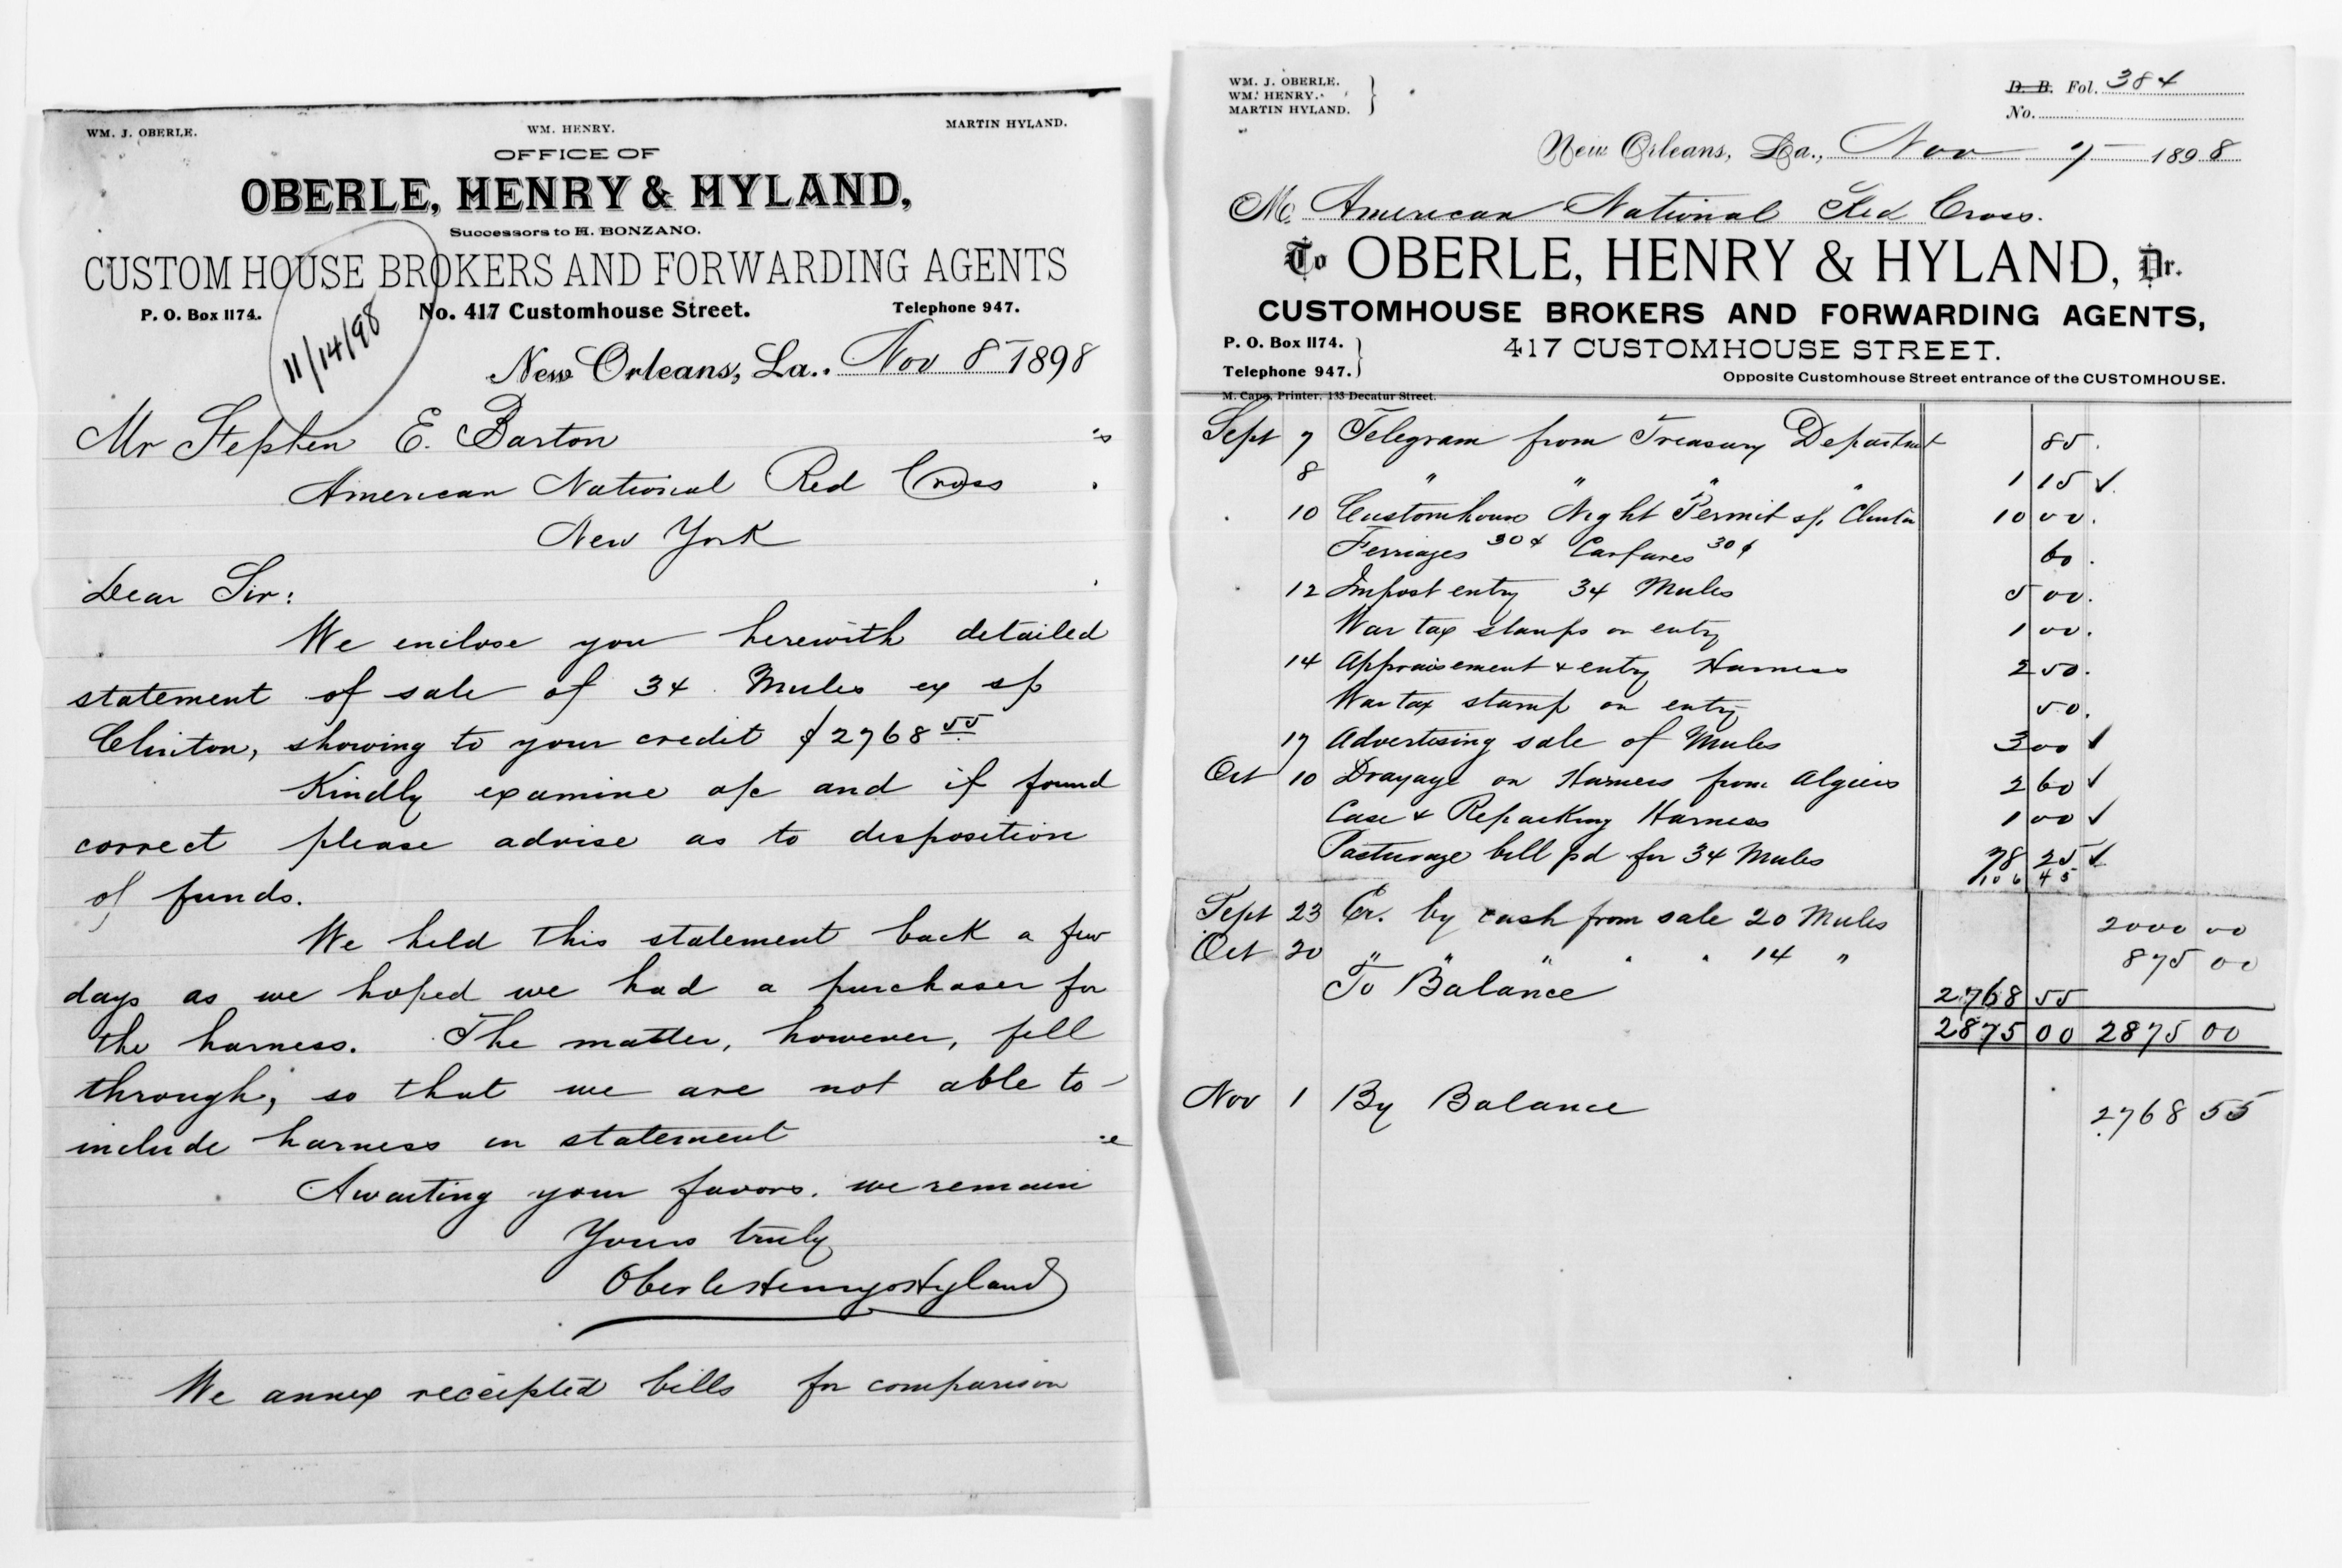 WM. J. OBERLE.
WM. HENRY.
MARTIN HYLAND.
OFFICE OF
OBERLE, HENRY & HYLAND,
Successors to H. BONZANO.
CUSTOM HOUSE BROKERS AND FORWARDING AGENTS
P. O. Box 1174.
No. 417 Customhouse Street.
Telephone 947.
11/14/98
New Orleans, La., Nov 8 1898
Mr Stephen E. Barton
American National Red Cross
New York
Dear Sir:
We enclose you herewith detailed
statement of sale of 34 Mules ex sp
Clinton, showing to your credit $2768 55
Kindly examine a/c and if found
correct please advise as to disposition
of funds.
We held this statement back a few
days as we hoped we had a purchaser for
the harness. The matter, however, fell
through, so that we are not able to
include harness in statement
Awaiting your favors. we remain
Yours truly
Oberle Henry & Hyland
We annex receipted bills for comparison
WM. J. OBERLE.
WM. HENRY.
MARTIN HYLAND.
D. B. Fol. 384
No.
New Orleans, La., Nov 7 1898
M American National Red Cross.
To OBERLE, HENRY & HYLAND, Dr.
CUSTOMHOUSE BROKERS AND FORWARDING AGENTS,
P. O. Box 1174.
Telephone 947.
417 CUSTOMHOUSE STREET.
Opposite Customhouse Street entrance of the CUSTOMHOUSE.
M. Capo, Printer, 133 Decatur Street.
Sept 7 Telegram from Treasury Department 85
8 " " " " 1 15 ✓
10 Customhouse Night Permit s/s Clinton 10 00
Ferriages 30¢ Carfares 30¢ 60
12 Impost entry 34 Mules 5 00
War tax stamps on entry 1 00
14 Appraisement & entry Harness 2 50
War tax stamp on entry 50
17 Advertising sale of Mules 3 00 ✓
Oct 10 Drayage on Harness from Algiers 2 60 ✓
Case & Repacking Harness 1 00 ✓
Pasturage bill pd for 34 Mules 78 25 ✓
106 45
Sept 23 Cr. by cash from sale 20 Mules 2000 00
Oct 20 " " " " " 14 " 875 00
To Balance 2768 55
2875 00 2875 00
Nov 1 By Balance 2768 55